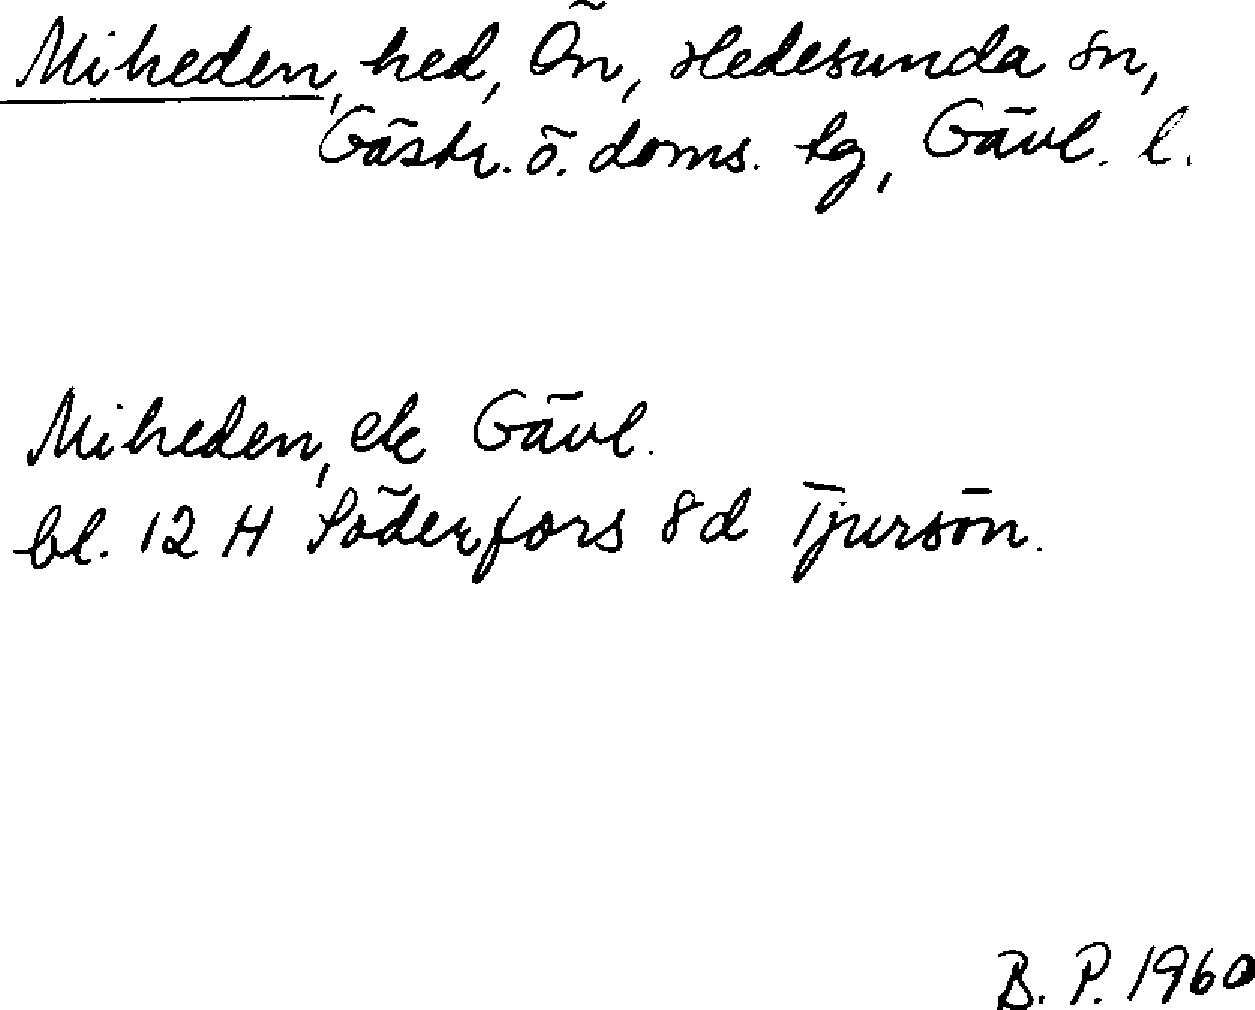 Miheden, hed, Ön, Hedesunda sn,
Gästr. ö. doms. tg, Gävl. l.
Miheden, ek Gävl.
bl. 12 H Söderfors 8d Tjursön.
B. P. 1960